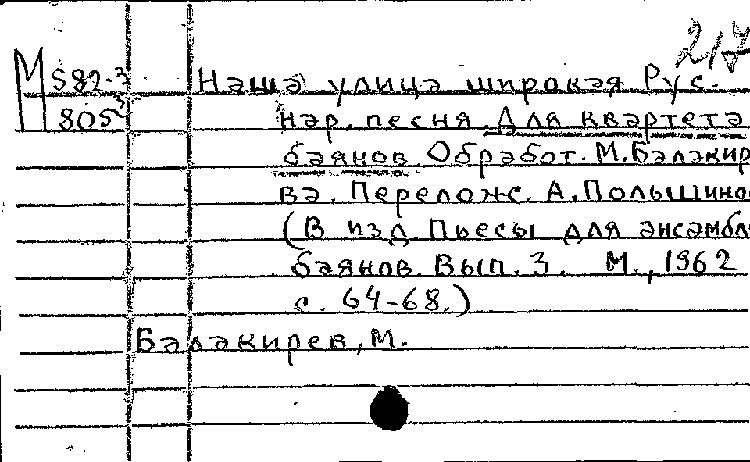 217
М 582-3 Наша улица широкая Рус.
805 нар. песня. Для квартета
баянов. Обработ. М. Балакир
ва. Перелож. А. Полышино
(В изд. Пьесы для ансамбля
баянов. Вып. 3. М., 1962
с. 64-68.)
Балакирев, М.